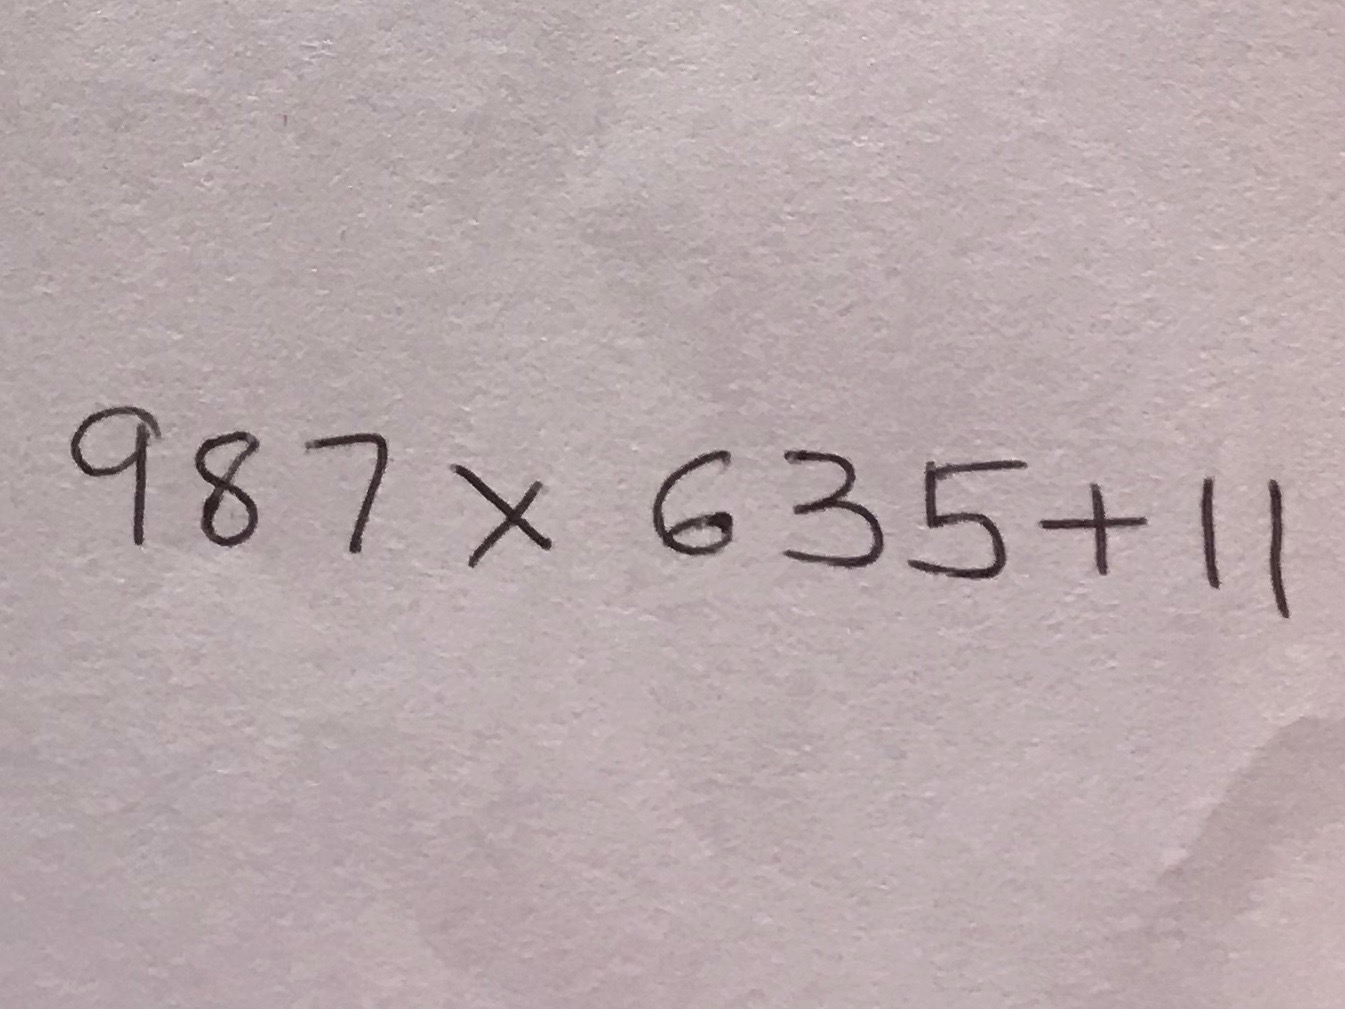 987 x 635 + 11